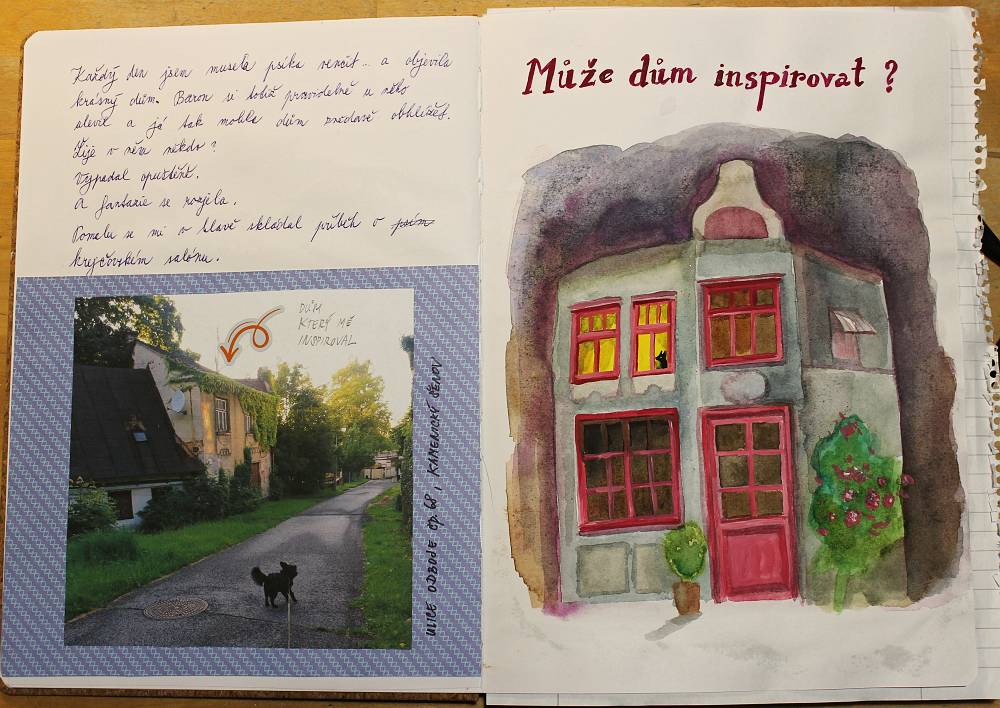 Každý den jsem musela psíka venčit... a objevila
krásný dům. Baron si totiž pravidelně u něho
ulevil a já tak mohla dům zvědavě obhlížet.
Žije v něm někdo?
Vypadal opuštěně.
A fantazie se rozjela.
Pomalu se mi v hlavě skládal příběh o psím
krejčovském salónu.
DŮM
KTERÝ MĚ
INSPIROVAL
ULICE ODBOJE čp. 68, KAMENICKÝ ŠENOV
Může dům inspirovat ?